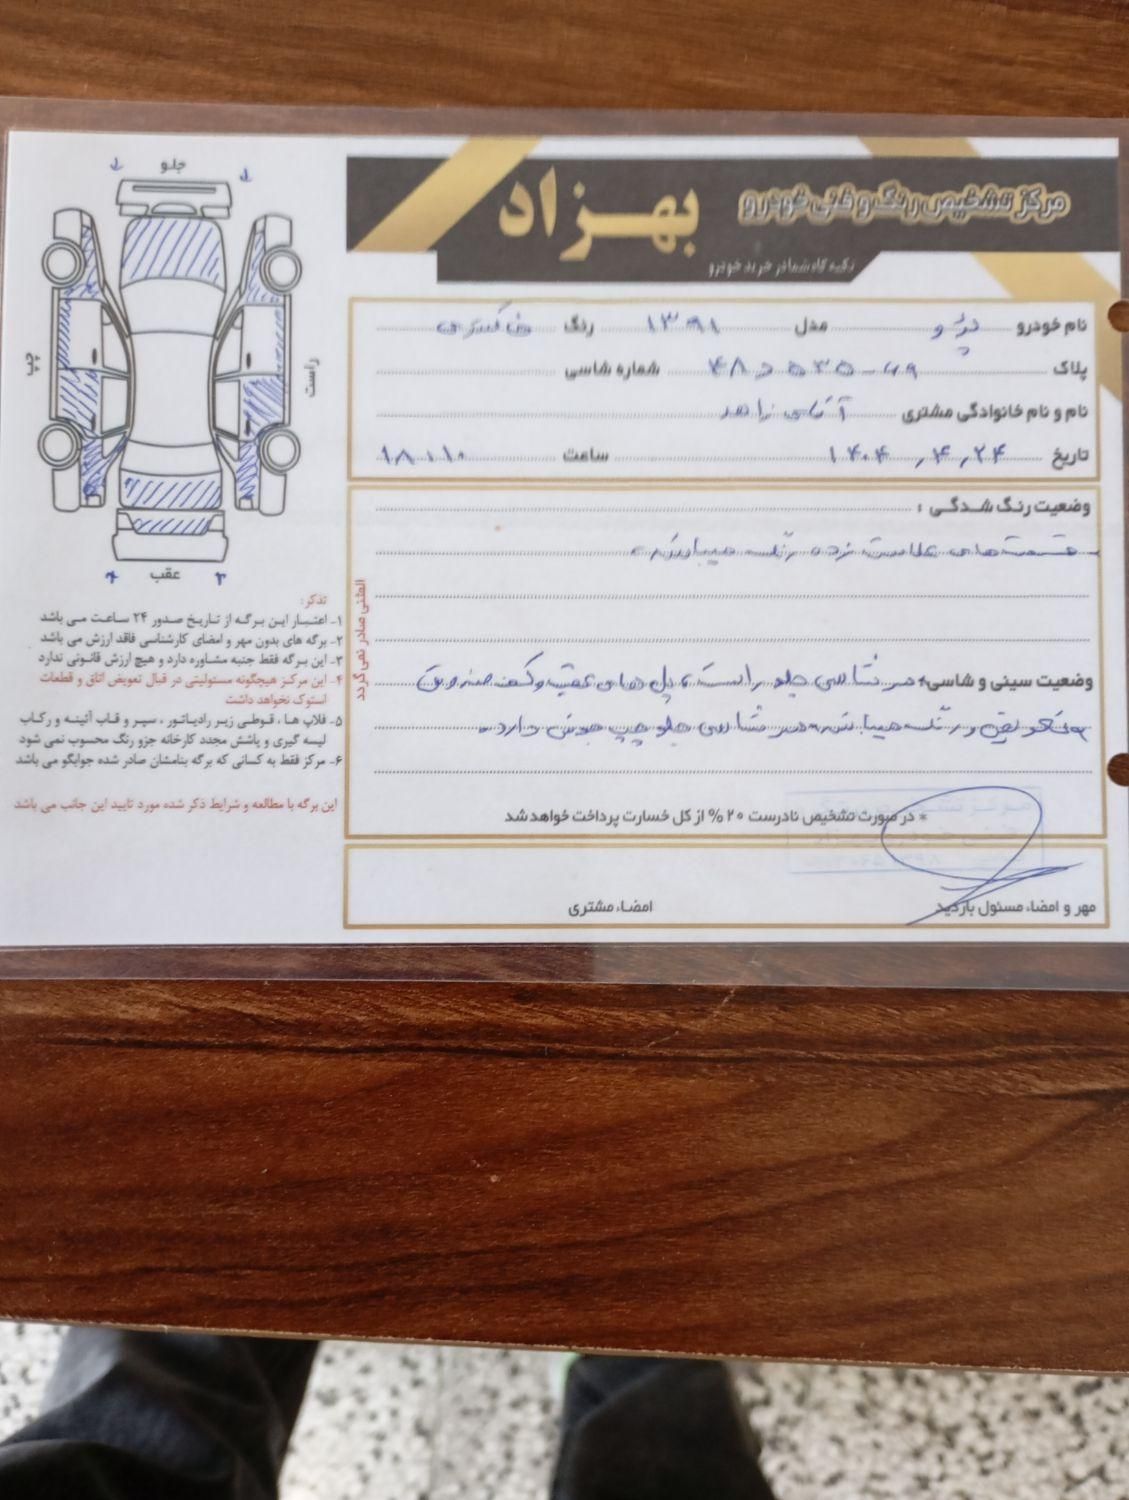 مرکز تشخیص رنگ و فنی خودرو
بهـزاد
تکیه گاه شما در خرید خودرو
نام خودرو پژو مدل ۱۳۹۱ رنگ خاکستری
پلاک ۴۸د۵۳۵-۶۹ شماره شاسی
نام و نام خانوادگی مشتری آقای زاهد
تاریخ ۱۴۰۴,۴,۲۴ ساعت ۱۸:۱۰
وضعیت رنگ شدگی :
قسمت های علامت زده رنگ میباشد
وضعیت سینی و شاسی: سر شاسی جلو راست، پل های عقب و کف صندوق
تعویض و رنگ میباشد سر شاسی جلو چپ جوش دارد.
* در صورت تشخیص نادرست ۲۰% از کل خسارت پرداخت خواهد شد
مهر و امضاء مسئول بازدید
امضاء مشتری
المثنی صادر نمی گردد
جلو
چپ
راست
عقب
تذکر:
۱- اعتبـار ایـن بـرگـه از تـاریـخ صدور ۲۴ ساعـت مـی باشد
۲- برگه های بدون مهر و امضای کارشناسی فاقد ارزش می باشد
۳- این برگه فقط جنبه مشاوره دارد و هیچ ارزش قانونی ندارد
۴- این مرکـز هیچگونه مسئولیتی در قبال تعویض اتاق و قطعات
استوک نخواهد داشت
۵- فلاپ هـا ، قـوطـی زیـر رادیـاتـور ، سپـر و قـاب آئینـه و رکـاب
لیسه گیری و پاشش مجدد کارخانه جزو رنگ محسوب نمی شود
۶- مرکز فقط به کسانی که برگه بنامشان صادر شده جوابگو می باشد
این برگه با مطالعه و شرایط ذکر شده مورد تایید این جانب می باشد